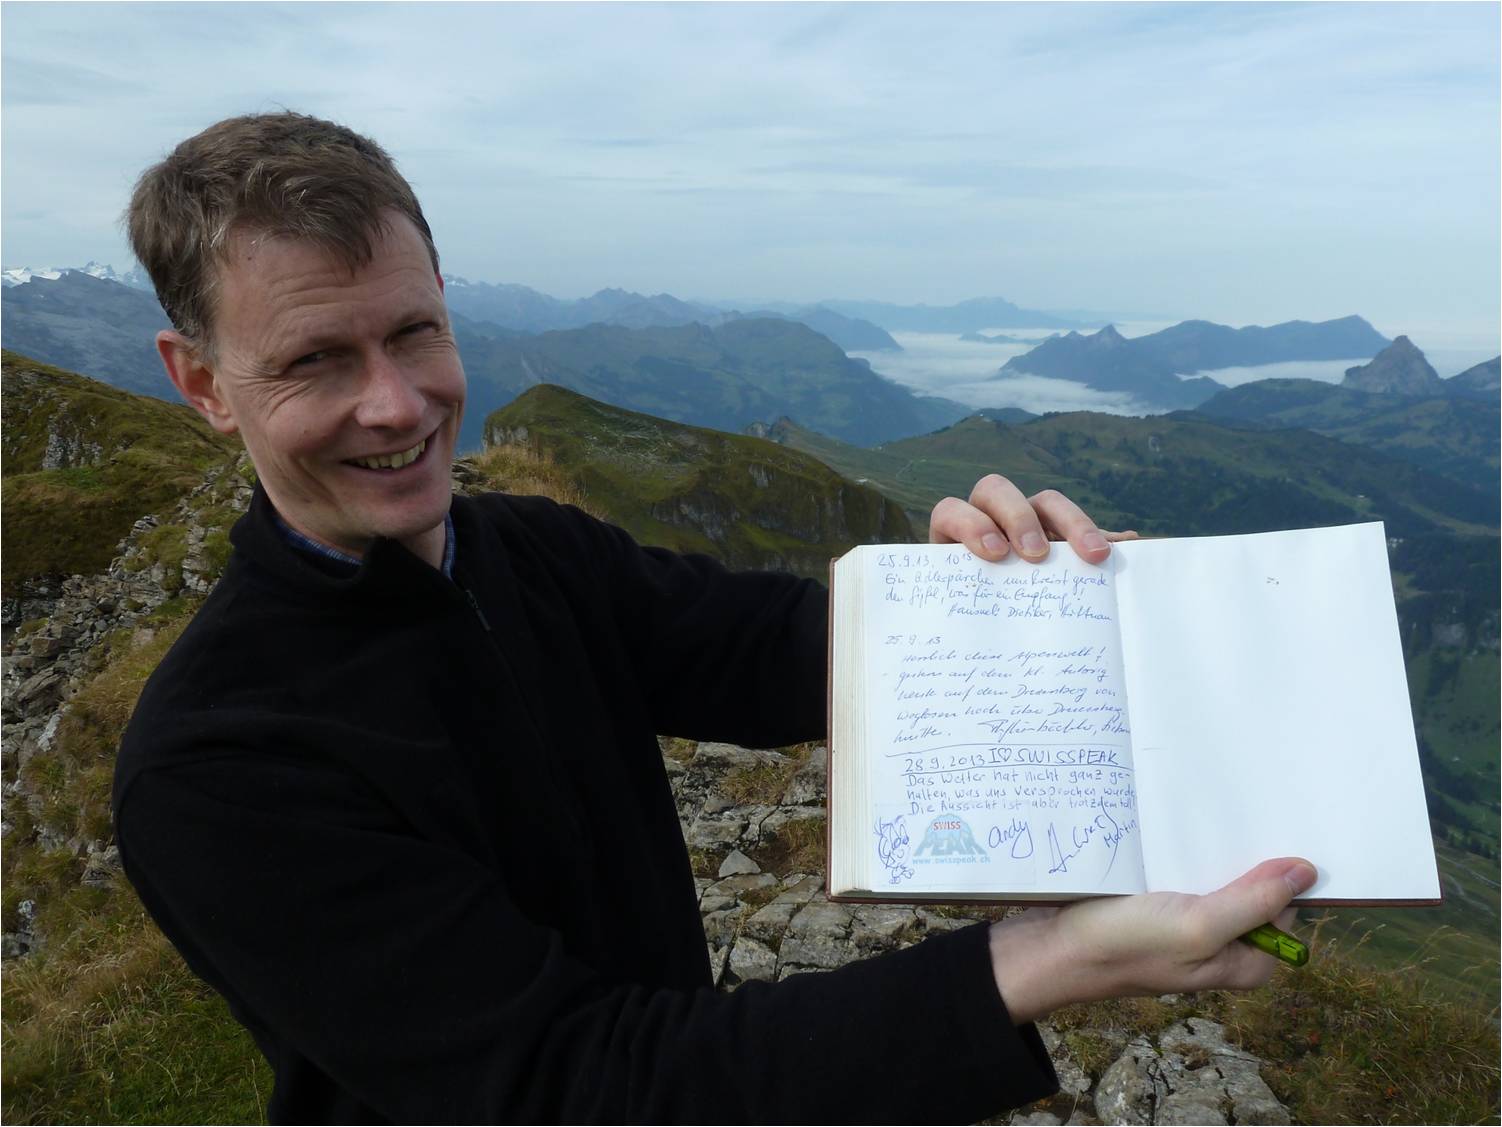 25.9.13, 10¹⁵
Ein Adlerpärchen umkreist gerade
den Gipfel, was für ein Empfang!
Hansueli Dietiker,
25.9.13
Herrlich diese Alpenwelt!
gestern auf dem kl. Aubrig
heute auf dem Druesberg von
Weglosen hoch über Druesberg-
hütte.
28.9.2013 I♡SWISSPEAK
Das Wetter hat nicht ganz ge-
halten, was uns versprochen wurde.
Die Aussicht ist aber trotzdem toll!
SWISS
PEAK
www.swisspeak.ch
Andy
Martin